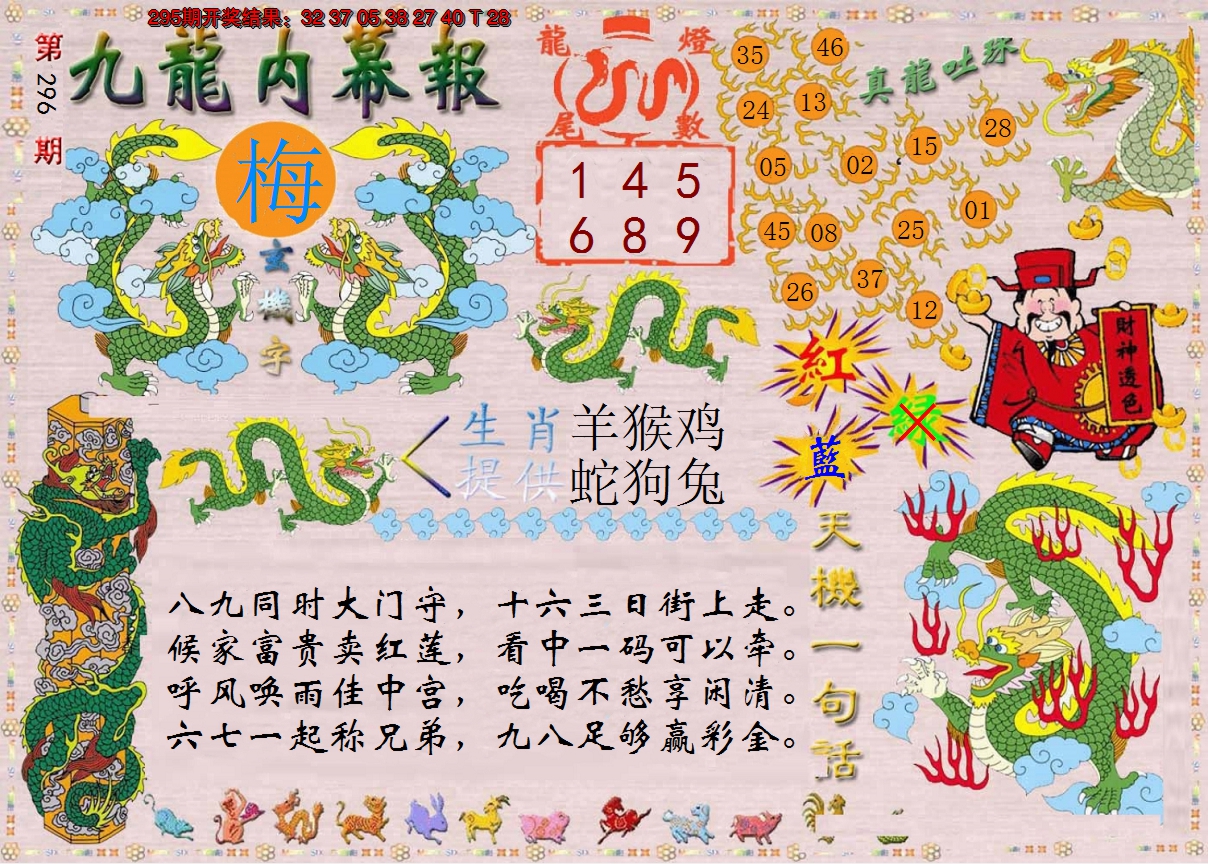 295期开奖结果：32 37 05 38 27 40 T 28
第296期
九龍内幕報
梅
玄機字
龍燈
尾數
1 4 5
6 8 9
真龍吐珠
35
46
24
13
05
02
15
28
45
08
25
01
26
37
12
財神透色
紅
绿
藍
生肖提供
羊猴鸡
蛇狗兔
天機一句話
八九同时大门守，十六三日街上走。
候家富贵卖红莲，看中一码可以牵。
呼风唤雨佳中宫，吃喝不愁享闲清。
六七一起称兄弟，九八足够赢彩金。